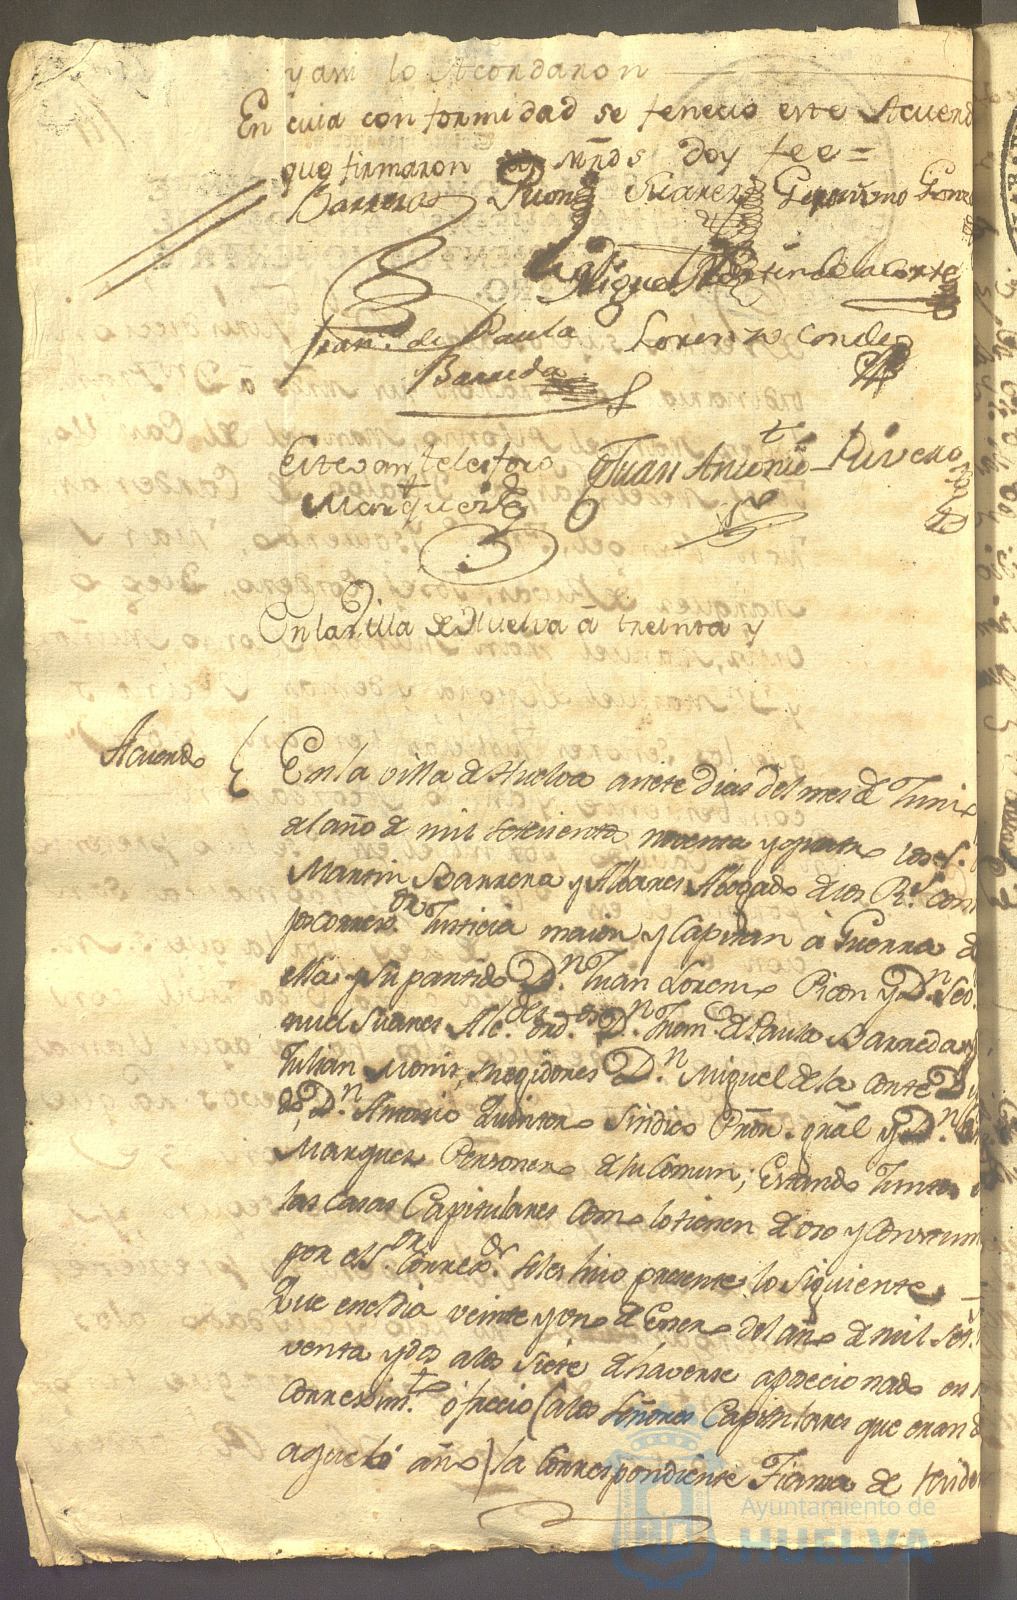 y assi lo Acordaron
En cuia conformidad se feneció este Acuerd
que firmaron sus Mrds doy fee =
Barreras Picon Suarez Geronimo
Miguel Martin de la Corte
Fran.co de Paula Lorenzo Conde
Barreda
Estevan Telesforo Juan Antonio Rivero
Marquez
En la Villa de Huelva a treinta y
Acuerdo
En la villa de Huelva a siete dias del mes de Juni
del año de mil setecientos noventa y quatro los S.
Martin Barrera y Albares Abogado de los R.s Con
Justicia maior y Capitan à Guerra de
ella y su partido D.n Juan Lorenzo Picon y D.n
nuel Suares Alc.des ord.os D.n Fran.co de Paula Barreda
Julian Monis, Regidores D.n Miguel de la Corte
D.n Antonio Quintero Sindico Pror. gral y D.n
Marquez Personero de su Comun; Estando Juntos
las Casas Capitulares como lo tienen de uso y costum
por el S.or Correx.or se les hizo presente lo siguiente
Que en el dia veinte y uno de Enero del año de mil set.
venta y dos a los siete de haverse aposecionado en
Correxim.to ofrecio (a los señores Capitulares que eran d
aquel año) la Correspondiente Fianza de
Ayuntamiento de
HUELVA